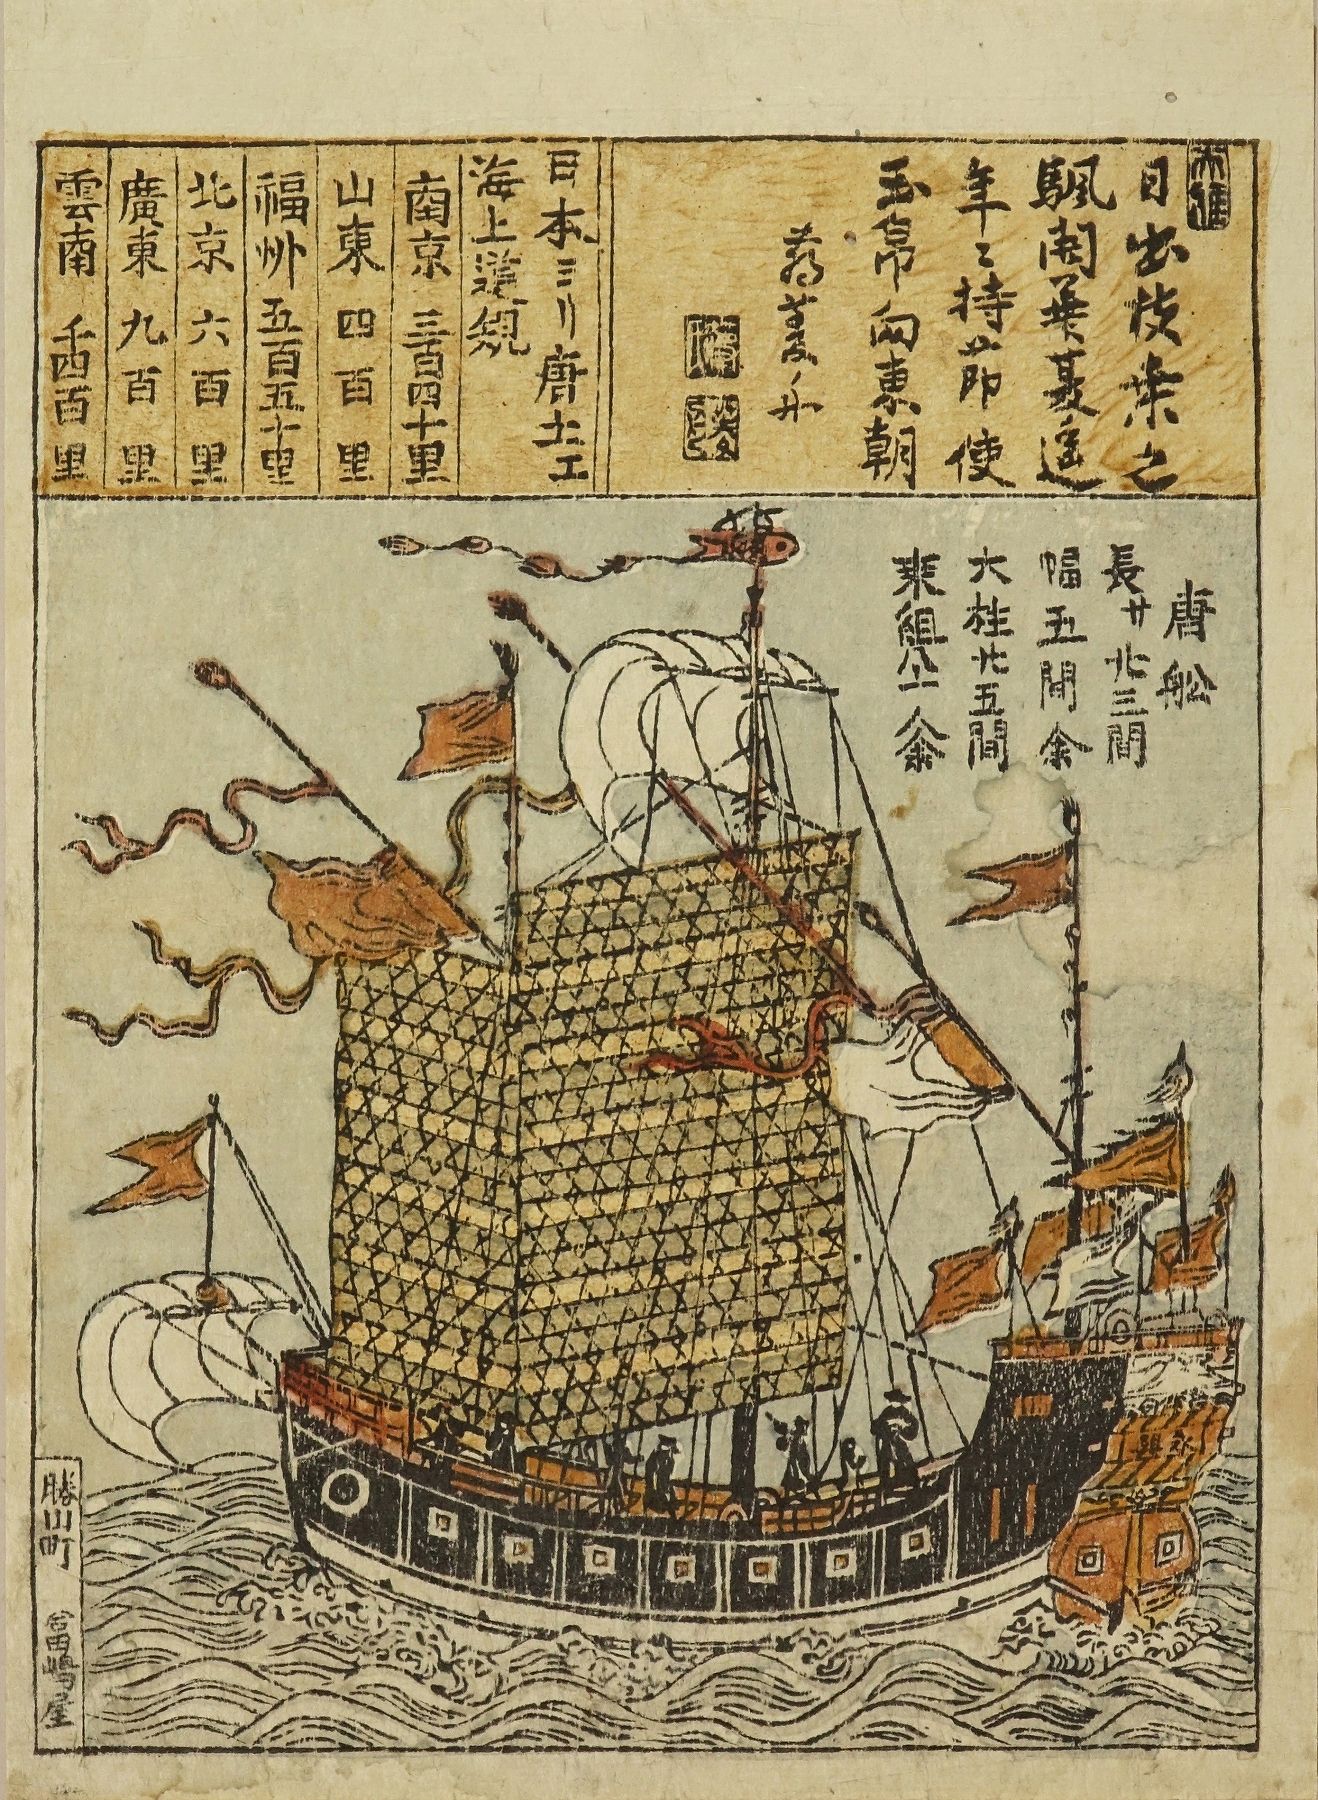 日出枝葉之
颿開華蓋遥
年〻持節使
玉帛向東朝
日本ヨリ唐土エ
海上道規
南京 三百四十里
山東 四百里
福州 五百五十里
北京 六百里
廣東 九百里
雲南 千四百里
唐船
長サ廿三間
幅五間余
大柱廿五間
乗組八十人余
勝山町 冨嶋屋